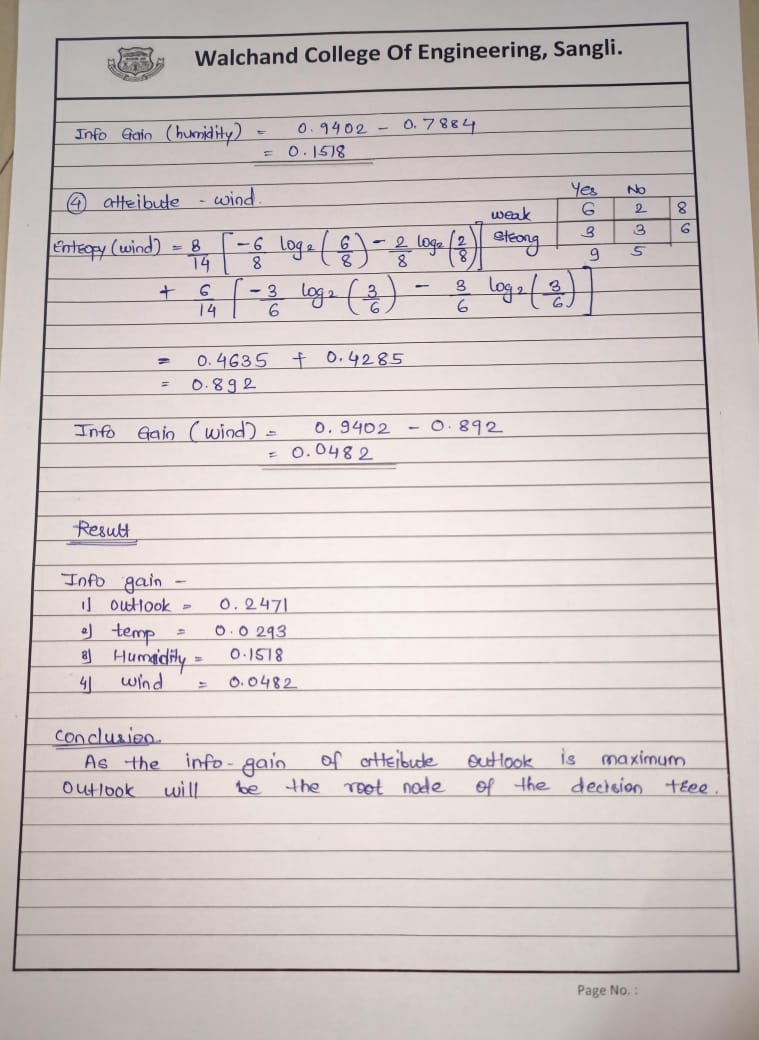 Walchand College Of Engineering, Sangli.
Info Gain (humidity) = 0.9402 - 0.7884
= 0.1518
④ attribute - wind.
Yes No
weak 6 2 8
strong 3 3 6
9 5
Entropy (wind) = 8/14 [ -6/8 log2 (6/8) - 2/8 log2 (2/8) ]
+ 6/14 [ -3/6 log2 (3/6) - 3/6 log2 (3/6) ]
= 0.4635 + 0.4285
= 0.892
Info Gain (wind) = 0.9402 - 0.892
= 0.0482
Result
Info gain -
1) outlook = 0.2471
2) temp = 0.0293
3) Humidity = 0.1518
4) wind = 0.0482
conclusion
As the info-gain of attribute outlook is maximum
Outlook will be the root node of the decision tree.
Page No. :